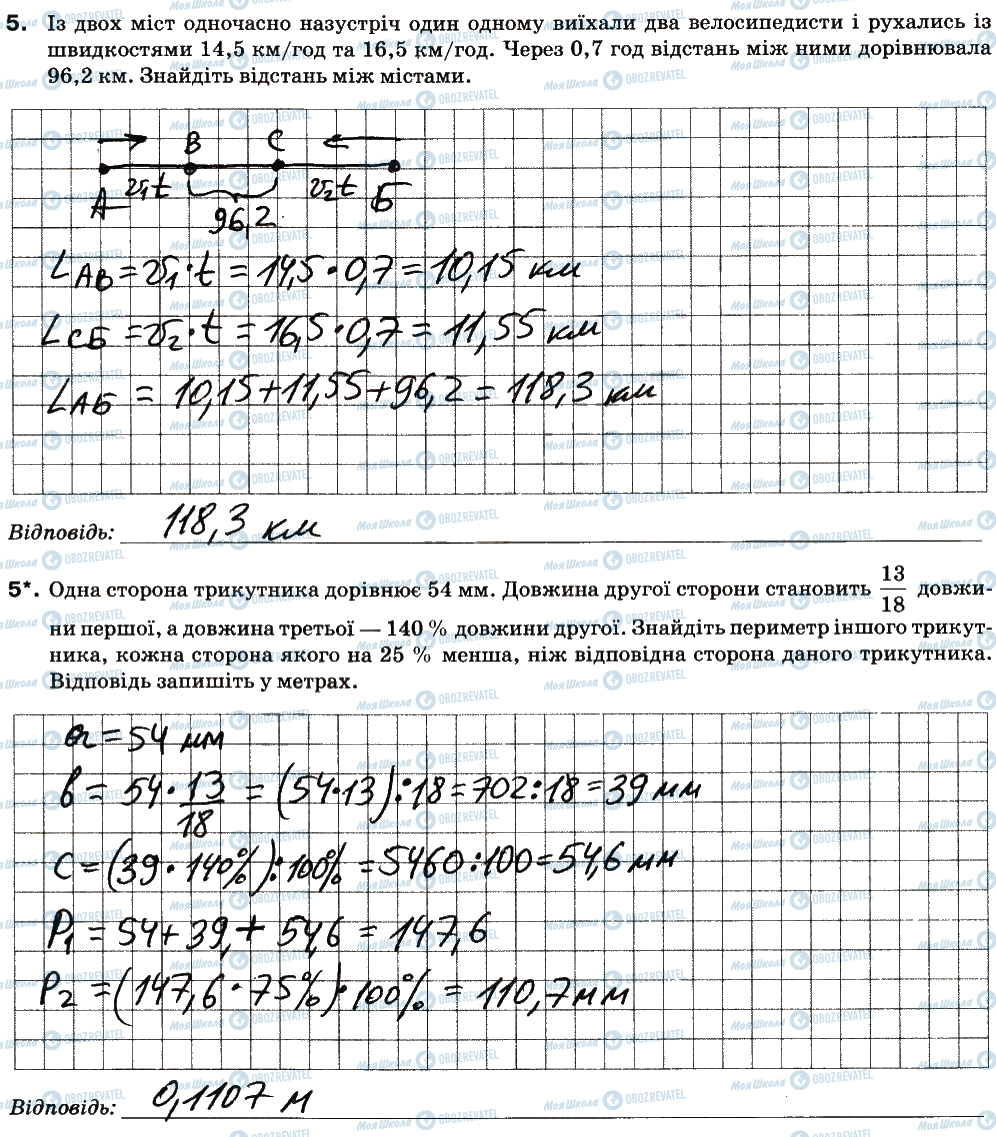 5. Із двох міст одночасно назустріч один одному виїхали два велосипедисти і рухались із
швидкостями 14,5 км/год та 16,5 км/год. Через 0,7 год відстань між ними дорівнювала
96,2 км. Знайдіть відстань між містами.
B C
A v₁t v₂t Б
96,2
L_AB = v₁·t = 14,5·0,7 = 10,15 км
L_СБ = v₂·t = 16,5·0,7 = 11,55 км
L_АБ = 10,15+11,55+96,2 = 118,3 км
Відповідь: 118,3 км
5*. Одна сторона трикутника дорівнює 54 мм. Довжина другої сторони становить 13/18 довжи-
ни першої, а довжина третьої — 140 % довжини другої. Знайдіть периметр іншого трикут-
ника, кожна сторона якого на 25 % менша, ніж відповідна сторона даного трикутника.
Відповідь запишіть у метрах.
a = 54 мм
b = 54 · 13/18 = (54·13):18 = 702:18 = 39 мм
C = (39 · 140%):100% = 5460:100 = 54,6 мм
P₁ = 54 + 39, + 54,6 = 147,6
P₂ = (147,6 · 75%)·100% = 110,7 мм
Відповідь: 0,1107 м
МояШкола OBOZREVATEL